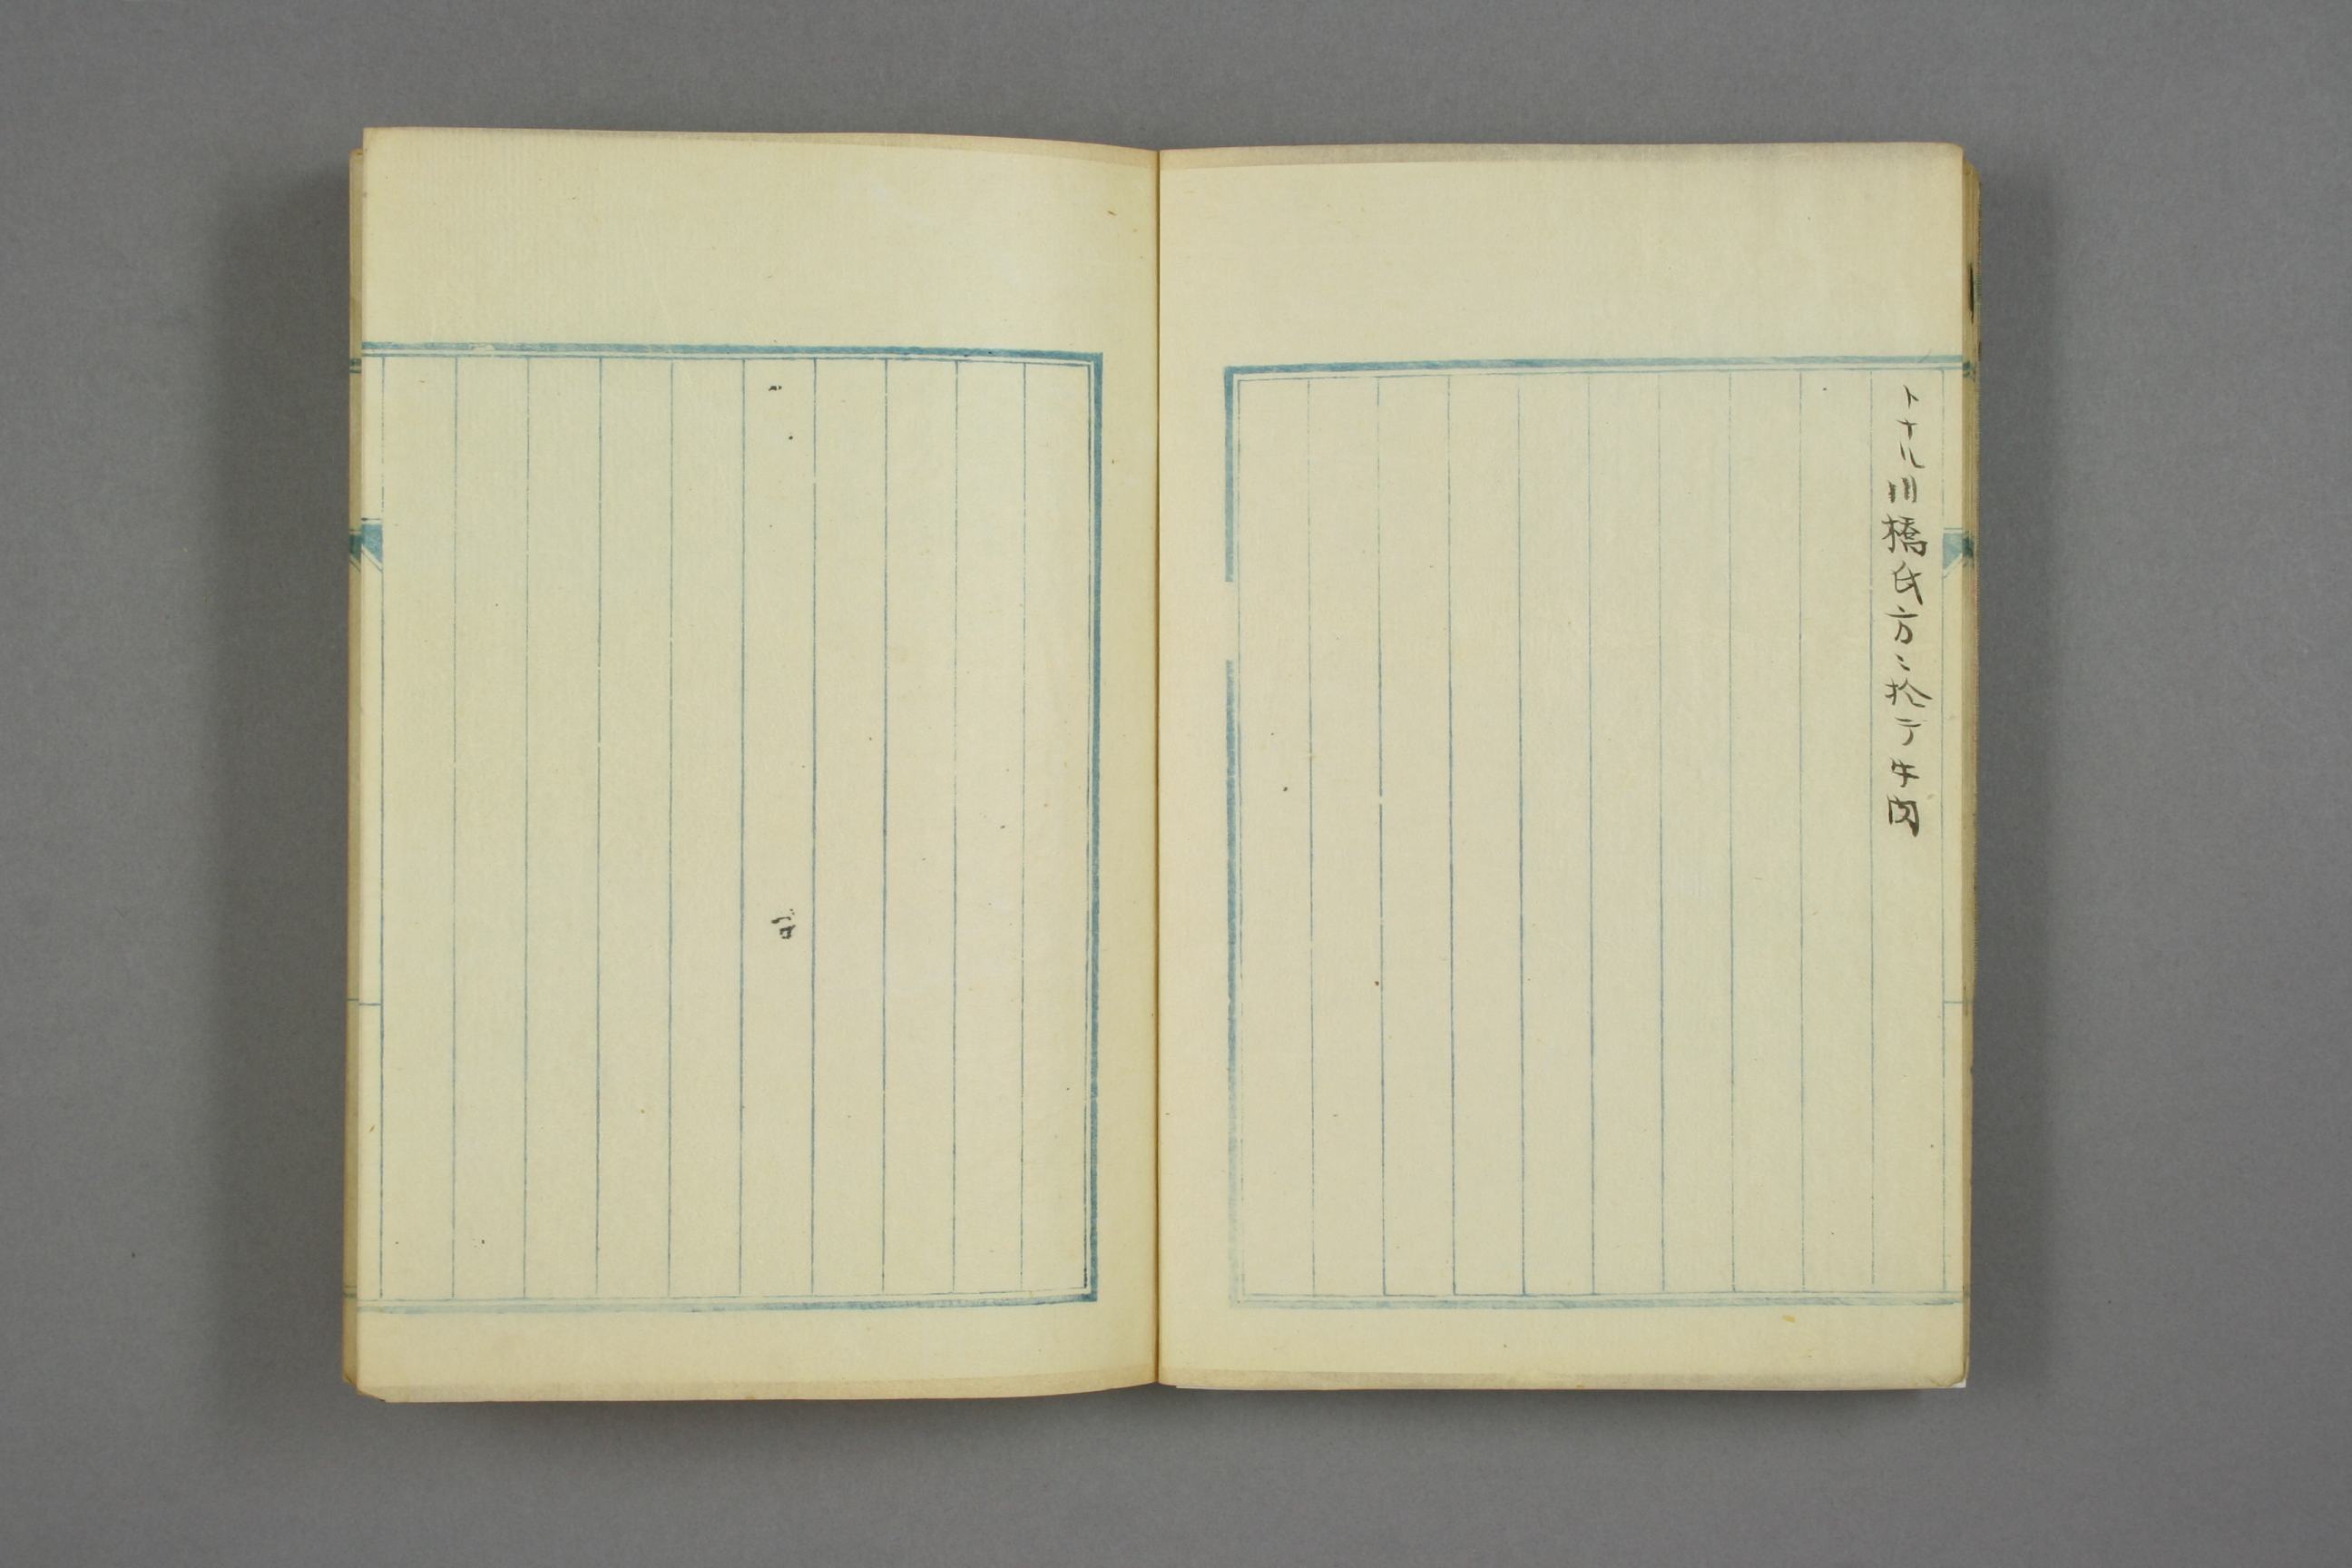 トナル川橋氏方ニ於テ牛肉